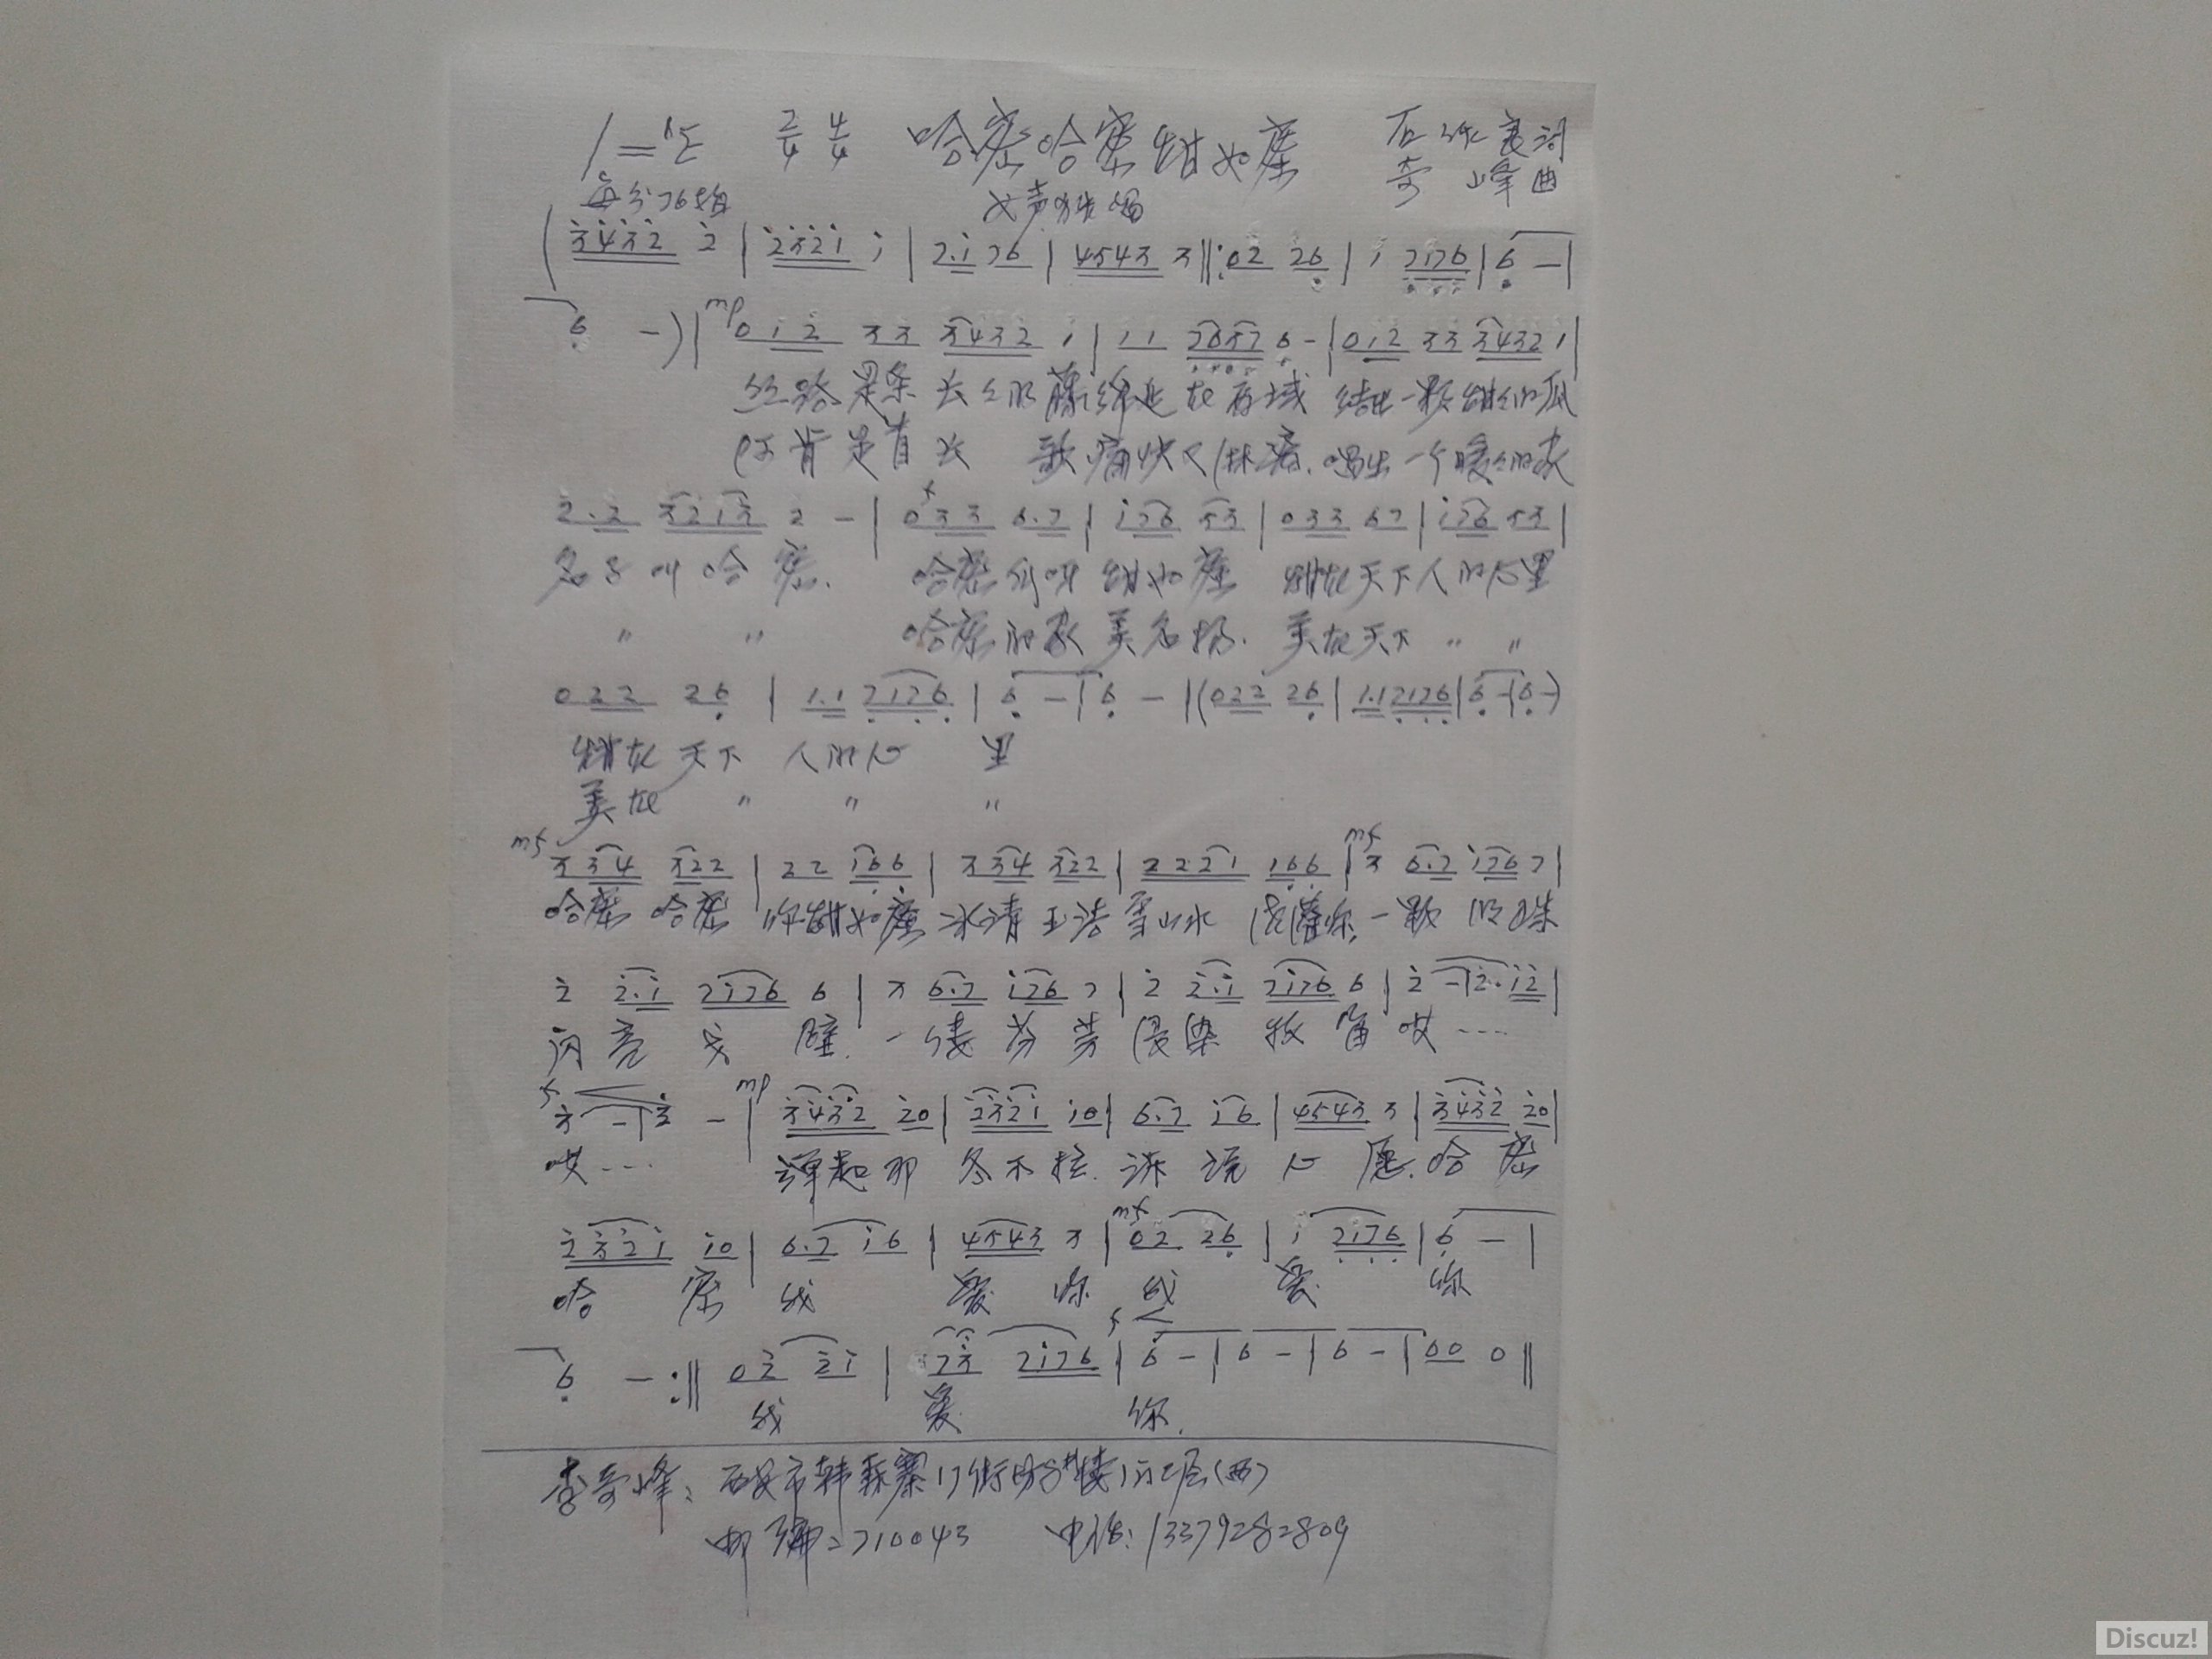 1=ᵇE 2/4 4/4 哈密哈密甜如蜜 词
每分76拍 女声独唱 奇峰曲
(3432 2 | 2321 1 | 2.1 76 | 4543 3 ‖: 02 26 | 1 2176 | 6 — |
6 —) | mp 012 33 3432 1 | 11 6 — | 012 33 3432 1 |
丝路是条长长的藤绵延在西域 结出一颗甜甜的瓜
有 长 歌痛快 唱出一个暖暖的家
2.2 3213 2 — | f 033 6.7 | 176 53 | 033 67 | 176 53 |
名字叫哈密. 哈密 甜如蜜 甜在天下人的心里
〃 〃 哈密的歌美名扬. 美在天下 〃 〃
022 26 | 1.1 2176 | 6 — | 6 — | (022 26 | 1.1 2176 | 6 — | 6 —)
甜在天下 人的心 里
美在 〃 〃 〃
mf 334 322 | 22 166 | 334 322 | 2221 166 | mf 3 6.7 176 7 |
哈密 哈密 你甜如蜜 冰清玉洁雪山水 灌你 一颗 珠
2 2.1 2176 6 | 3 6.7 176 7 | 2 2.1 2176 6 | 2 — | 2.12 |
闪亮 戈 壁. 一缕芬芳浸染 牧笛 哎 ....
f 3 — | 3 — | mp 3432 20 | 2321 10 | 6.7 16 | 4543 3 | 3432 20 |
哎 ... 弹起那 冬不拉. 诉说心愿. 哈密
2321 10 | 6.7 16 | 4543 3 | mf 02 26 | 1 2176 | 6 — |
哈 密 我 爱 你 我 爱 你
6 — :‖ 02 21 | 73 2176 | f 6 — | 6 — | 6 — | 60 0 ‖
我 爱 你.
李奇峰: 西安市韩森寨17街坊 层(西)
邮编:710043 电话:13379282809
Discuz!